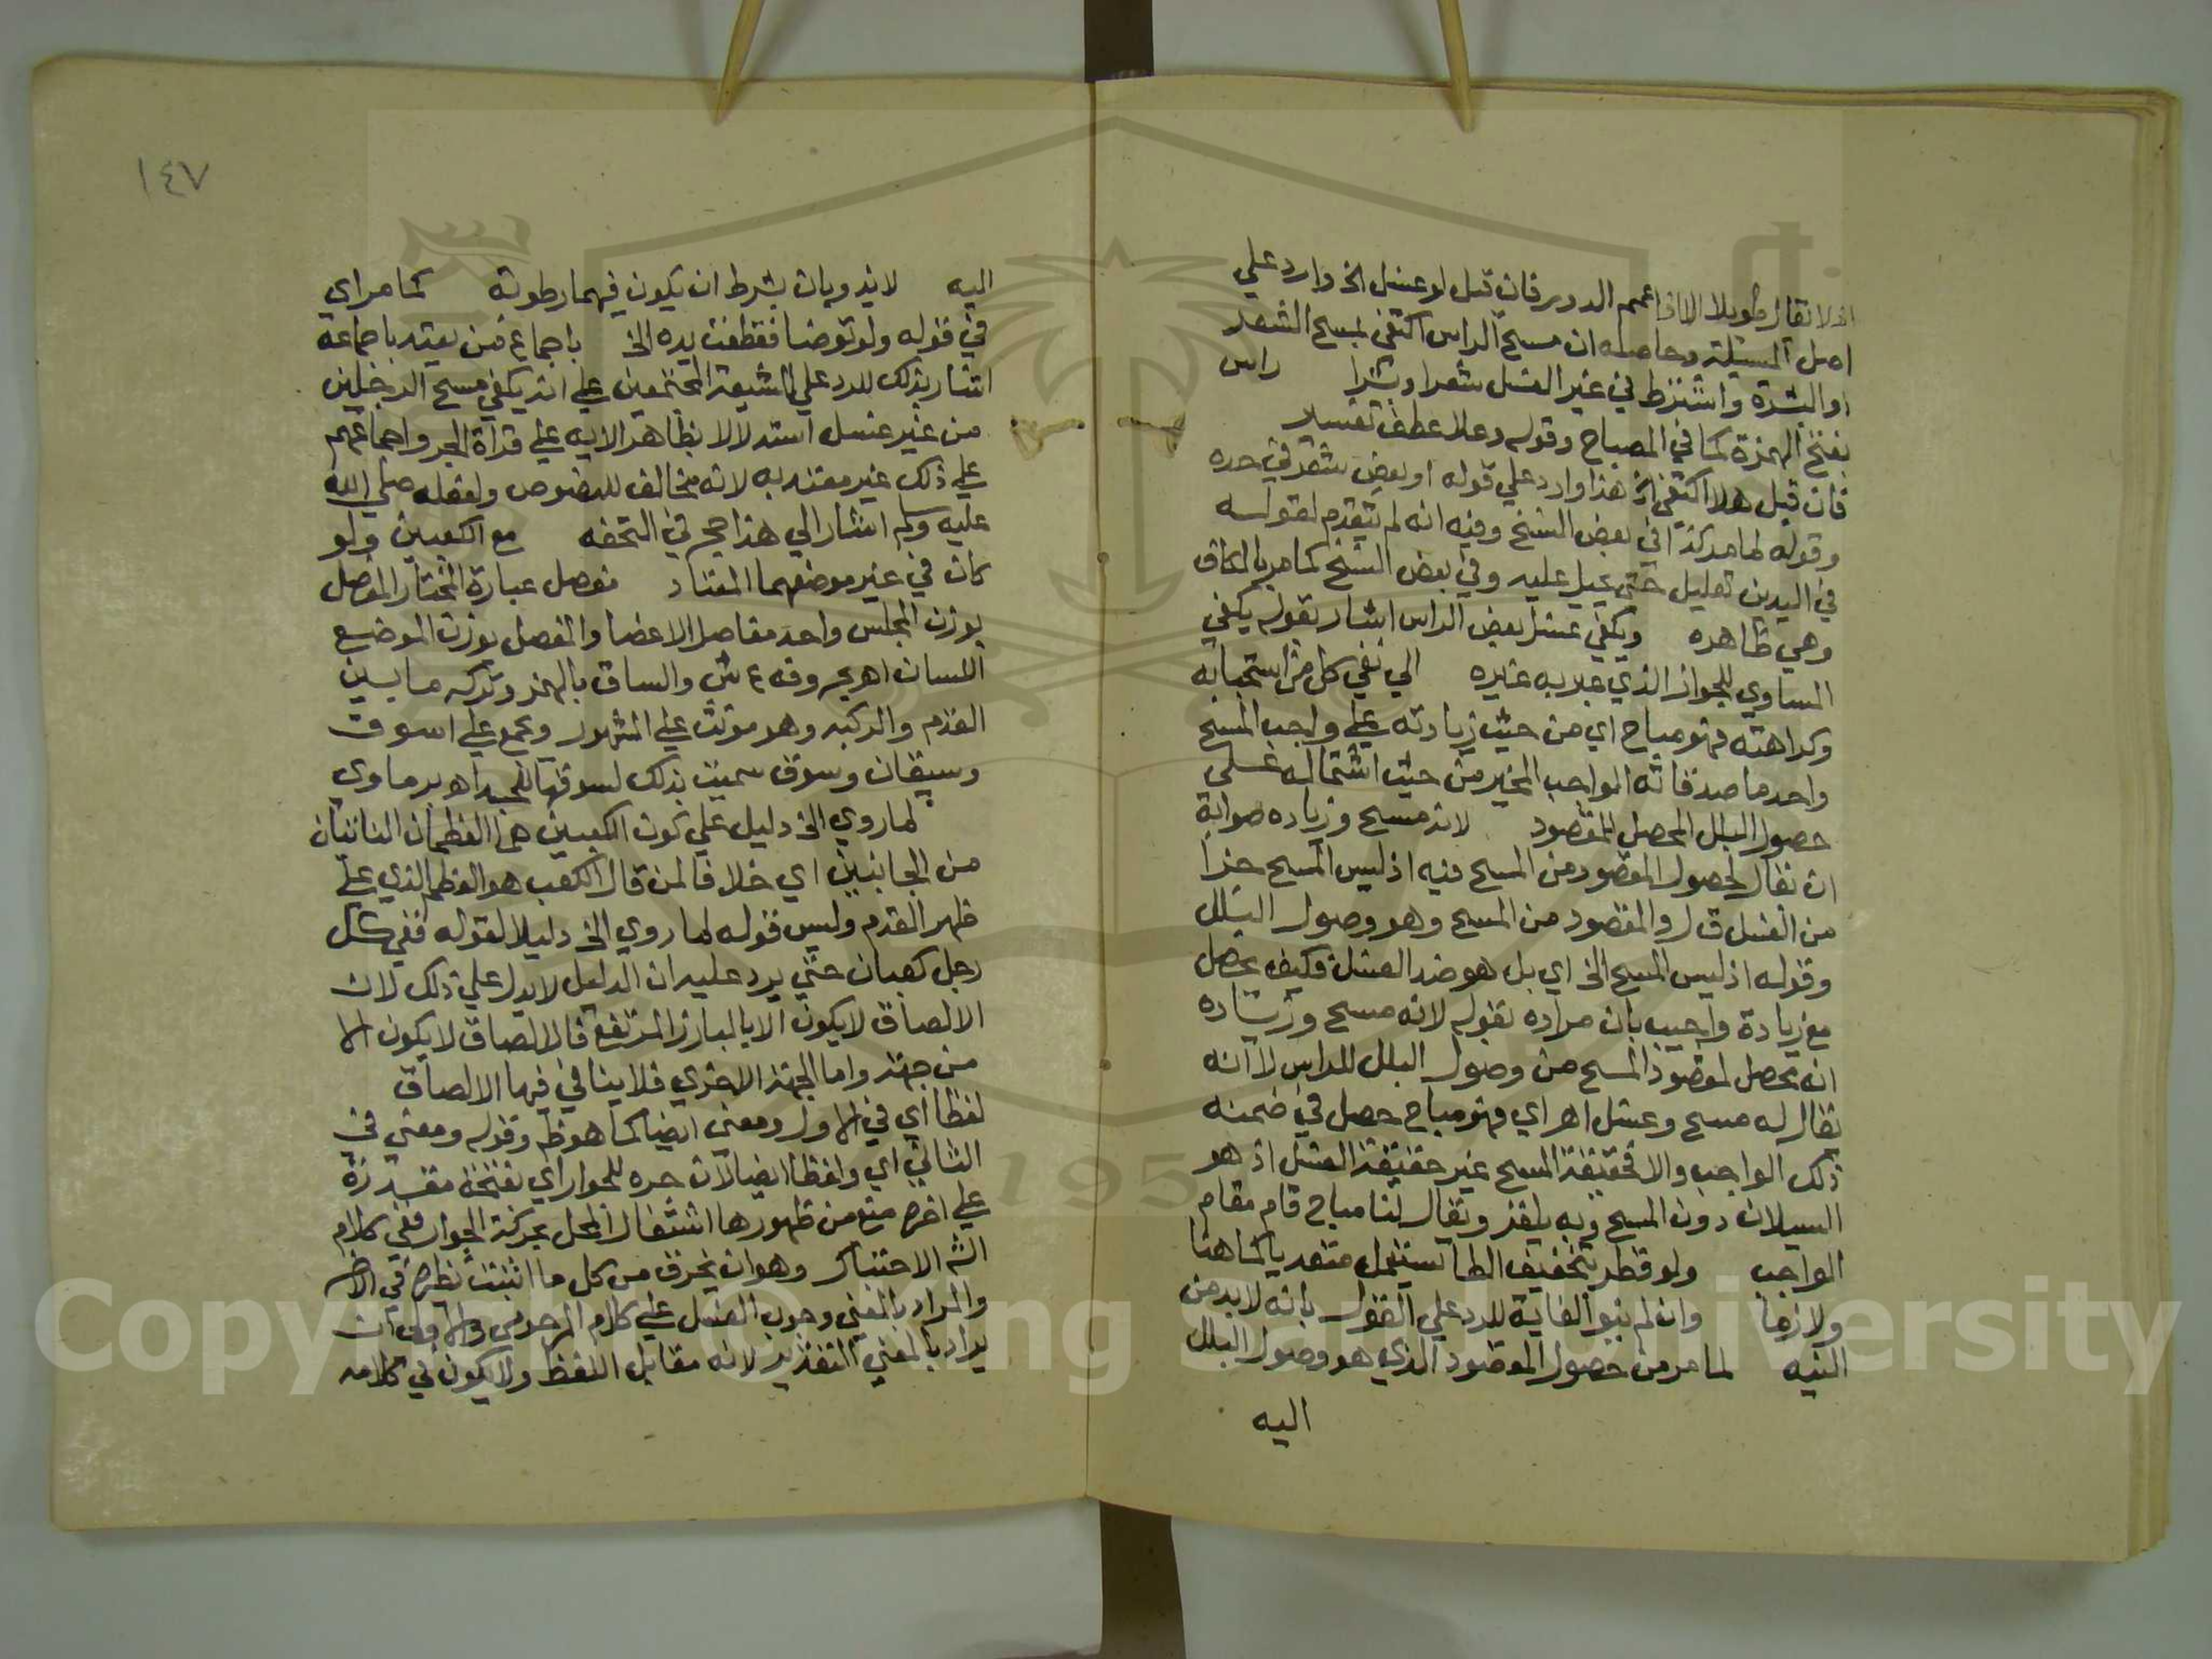 اذ لا يقال طويلا الا اذا عمم الدور فان قيل لو غسل الخ وارد علي
اصل المسئلة وحاصله ان مسح الراس اكتفي بمسح الشعر
او البشرة واشترط في غير الغسل شعرا وبشرا راس
بفتح الهمزة كما في المصباح وقوله وعلا عطف تفسير
فان قيل هلا اكتفي الخ هذا وارد علي قوله او بعض شعر في حده
وقوله لما مر كذا في بعض النسخ وفيه انه لم يتقدم لقوله
في اليدين تعليل حتي يحيل عليه وفي بعض النسخ كما مر بالكاف
وهي ظاهره ويكفي غسل بعض الراس اشار بقوله يكفي
المساوي للجواز الذي عبر به غيره الي نفي كل من استحبابه
وكراهته فهو مباح اي من حيث زيادته علي واجب المسح
واحد ما صدقاته الواجب المخير من حيث اشتماله علي
حصول البلل المحصل للمقصود لانه مسح وزياده صوابه
ان يقال لحصول المقصود من المسح فيه اذ ليس المسح جزا
من الغسل ق ل والمقصود من المسح وهو وصول البلل
وقوله اذ ليس المسح الخ اي بل هو ضد الغسل فكيف يحصل
مع زيادة واجيب بان مراده بقوله لانه مسح وزياده
انه محصل لمقصود المسح من وصول البلل للراس لا انه
يقال له مسح وغسل اهر اي فهو مباح حصل في ضمنه
ذلك الواجب والا فحقيقة المسح غير حقيقة الغسل اذ هو
السيلان دون المسح وبه يلغز ويقال لنا مباح قام مقام
الواجب ولو قطر بتخفيف الطا يستعمل متعديا كما هنا
ولازما وان لم ينو الغاية للرد علي القول بانه لا بد من
النيه لما مر من حصول المقصود الذي هو وصول البلل
اليه
١٤٧
اليه لا يندوبان بشرط ان يكون فيهما رطوبة كما مر اي
في قوله ولو توضا فقطعت يده الخ باجماع من يعتد باجماعه
اشار بذلك للرد علي الشيعة المجتمعين علي انه يكفي مسح الرجلين
من غير غسل استدلالا بظاهر الايه علي قراة الجر واجماعهم
علي ذلك غير معتد به لانه مخالف للنصوص ولفعله صلي الله
عليه وسلم اشار الي هذا حج في التحفه مع الكعبين ولو
كان في غير موضعهما المعتاد مفصل عبارة المختار المفصل
بوزن المجلس واحد مفاصل الاعضا والمفصل بوزن الموضع
اللسان اهر بحروفه ع ش والساق بالهمز وتركه ما بين
القدم والركبه وهو مونث علي المشهور ويجمع علي اسوق
وسيقان وسوق سميت بذلك لسوقها للجسد اهر برماوي
لما روي الخ دليل علي كون الكعبين هما العظمان الناتئان
من الجانبين اي خلافا لمن قال الكعب هو العظم الذي علي
ظهر القدم وليس قوله لما روي الخ دليلا لقوله ففي كل
رجل كعبان حتي يرد عليه ان الدليل لا يدل علي ذلك لان
الالصاق لا يكون الا بالبارز المرتفع فالالصاق لا يكون الا
من جهة واما الجهة الاخري فلا ينافي فيها الالصاق
لفظا اي في الاول ومعني ايضا كما هو ظ وقوله ومعني في
الثاني اي ولفظا ايضا لان جره للجوار اي بفتحة مقدرة
علي اخره منع من ظهورها اشتغال المحل بحركة الجوار ففي كلام
الش الاحتباك وهو ان يحذف من كل ما اثبت نظيره في الاخر
والمراد بالمعني وجوب الغسل علي كلام المرحومي والاولي ان
يراد بالمعني التقدير لانه مقابل اللفظ ولا يكون في كلامه
Copyright © King Saud University
195